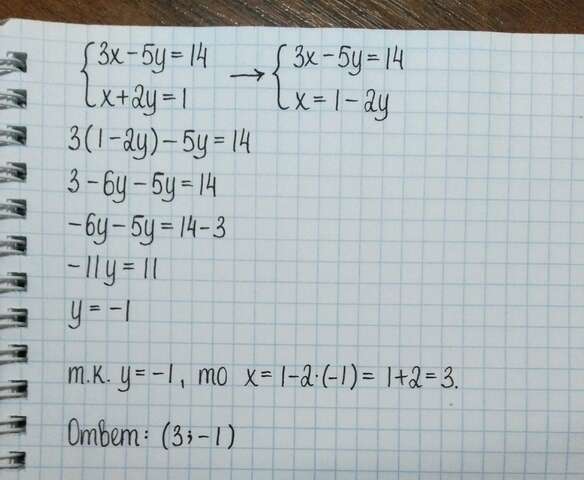 {3x-5y=14 → {3x-5y=14
{x+2y=1 {x=1-2y
3(1-2y)-5y=14
3-6y-5y=14
-6y-5y=14-3
-11y=11
y=-1
т.к. y=-1, то x=1-2·(-1)=1+2=3.
Ответ: (3;-1)